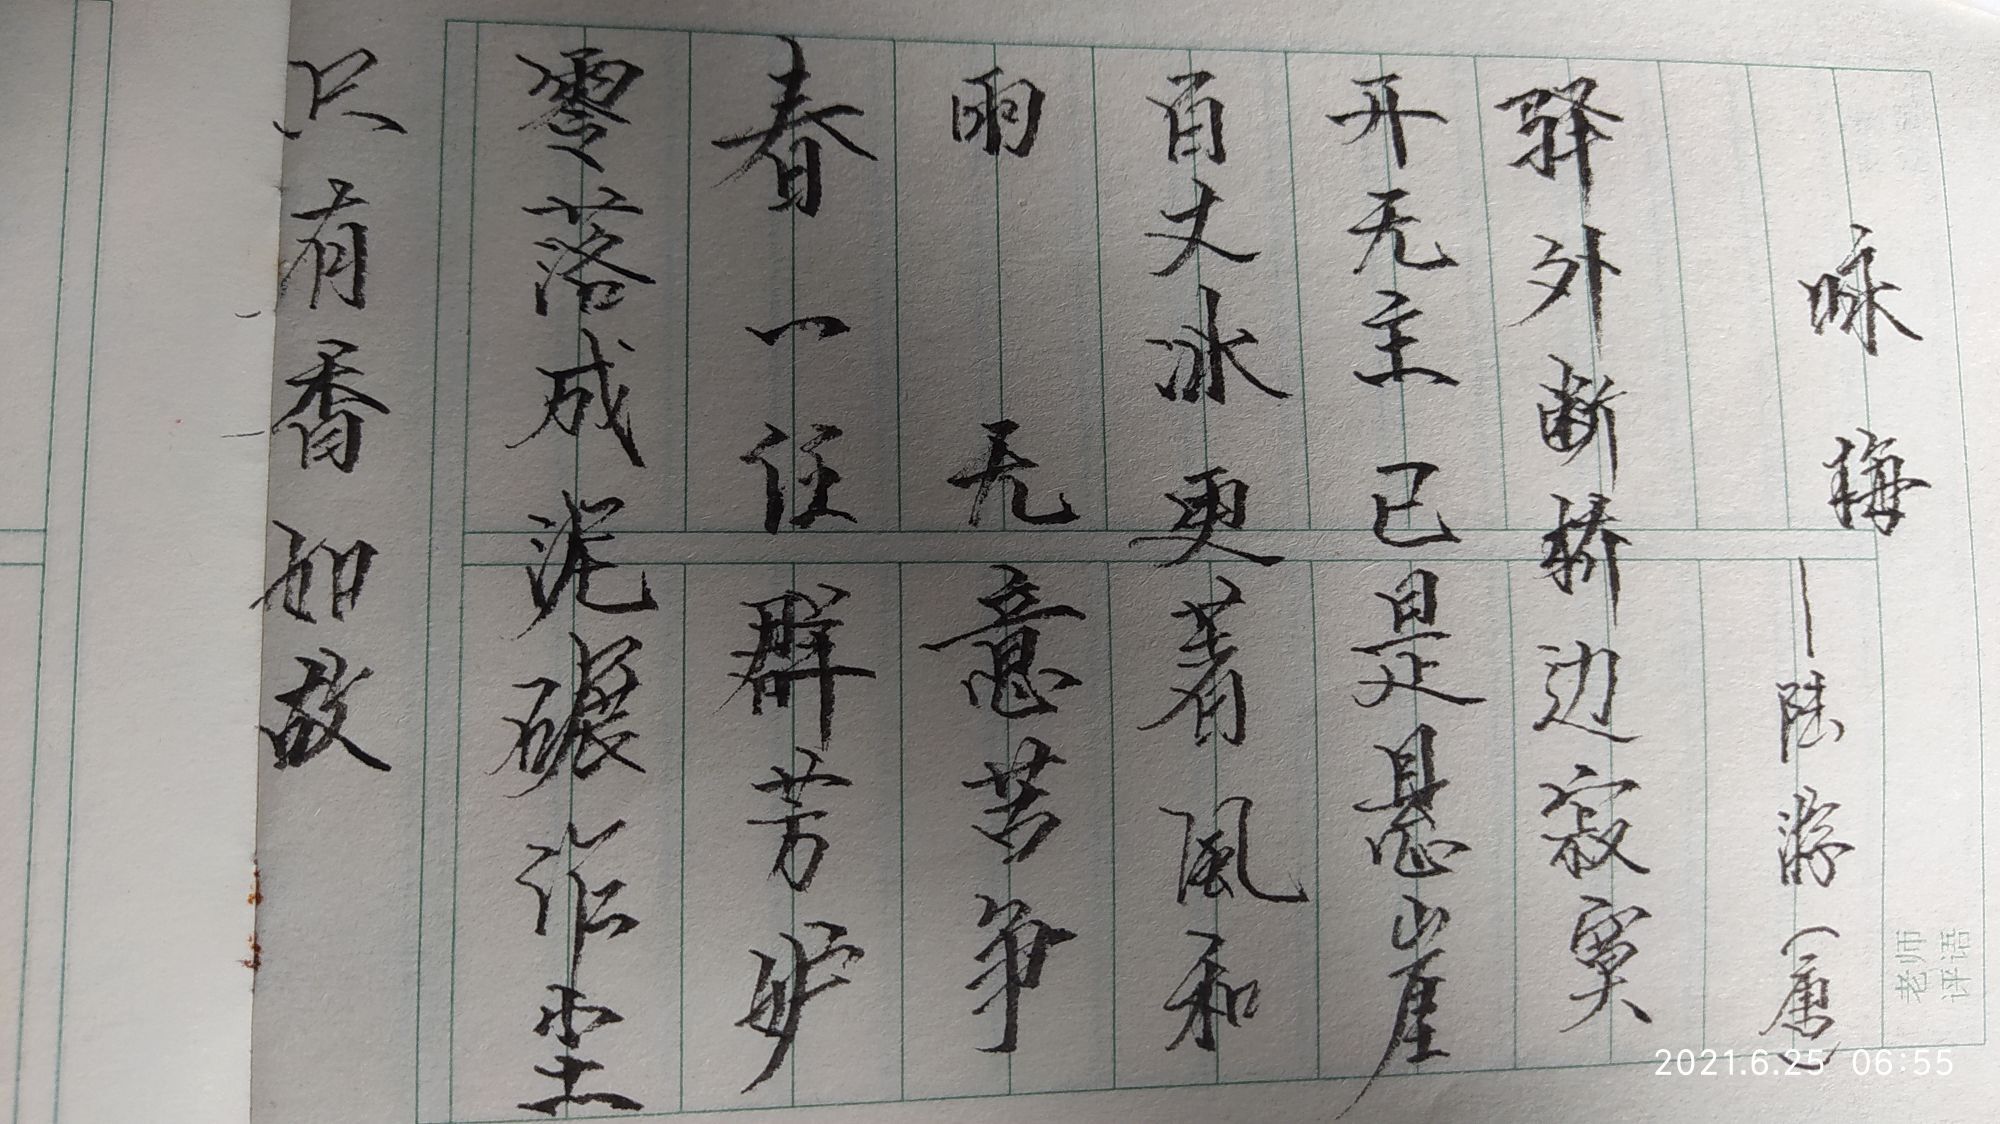 咏梅
——陆游(唐)
驿外断桥边寂寞
开无主已是悬崖
百丈冰更著风和
雨 无意苦争
春 一任群芳妒
零落成泥碾作尘
只有香如故
老师
评语
2021.6.25 06:55